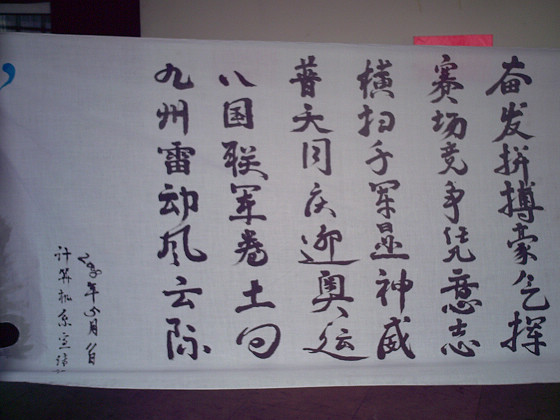 计算机系宣
年 月 日
九州雷动风云际
八国联军卷土回
普天同庆迎奥运
横扫千军显神威
赛场竞争凭意志
奋发拼搏豪气挥